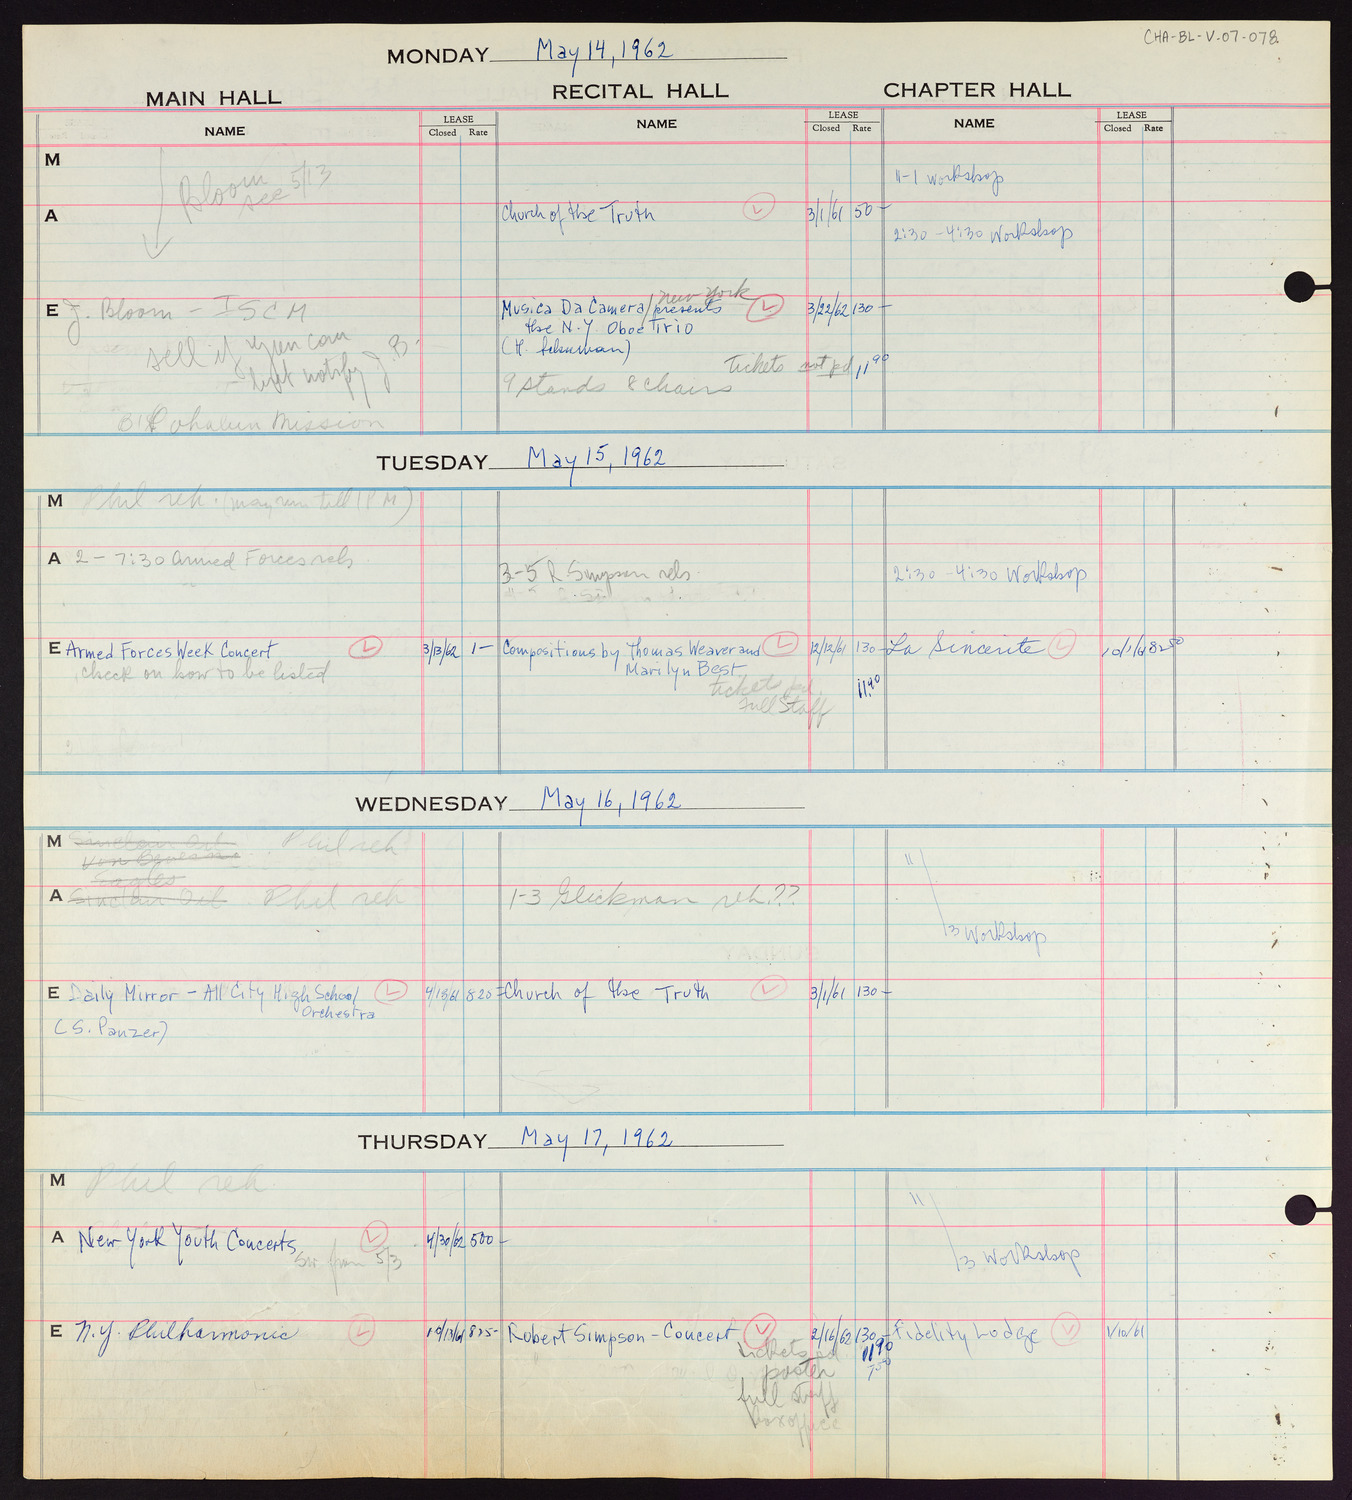 CHA-BL-V-07-078
MONDAY May 14, 1962
MAIN HALL RECITAL HALL CHAPTER HALL
NAME LEASE Closed Rate NAME LEASE Closed Rate NAME LEASE Closed Rate
M
Bloom
see 5/13
11-1 Workshop
A
Church of the Truth 3/1/61 50-
2:30-4:30 Workshop
E J. Bloom - ISCM
sell if you can
- but notify J B.
Mission
Musica Da Camera/presents New York 3/22/62 130-
the N.Y. Oboe Trio
tickets not pd 11.90
9 stands 8 chairs
TUESDAY May 15, 1962
M Phil reh. (may run till 1 PM)
A 2-7:30 Armed Forces rehs
3-5 R Simpson rehs.
2:30-4:30 Workshop
E Armed Forces Week Concert 3/13/62 1-
check on how to be listed
Compositions by Thomas Weaver and 12/12/61 130-
Marilyn Best
tickets pd. 11.90
Full Staff
La Sincerite 10/1/61 82.50
WEDNESDAY May 16, 1962
M Sinclair Oil Phil reh
Eagles
A Sinclair Oil Phil reh
1-3 Glickman reh.??
11
13 Workshop
E Daily Mirror - All City High School 820-
Orchestra
(S. Panzer)
Church of the Truth 3/1/61 130-
THURSDAY May 17, 1962
M Phil reh.
A New York Youth Concerts 4/30/62 500-
sw from 5/3
11
13 Workshop
E N.Y. Philharmonic 10/13/61 825-
Robert Simpson - Concert 2/16/62 130-
tickets pd 11.90
poster 7.50
full staff
box office
Fidelity Lodge 1/10/61